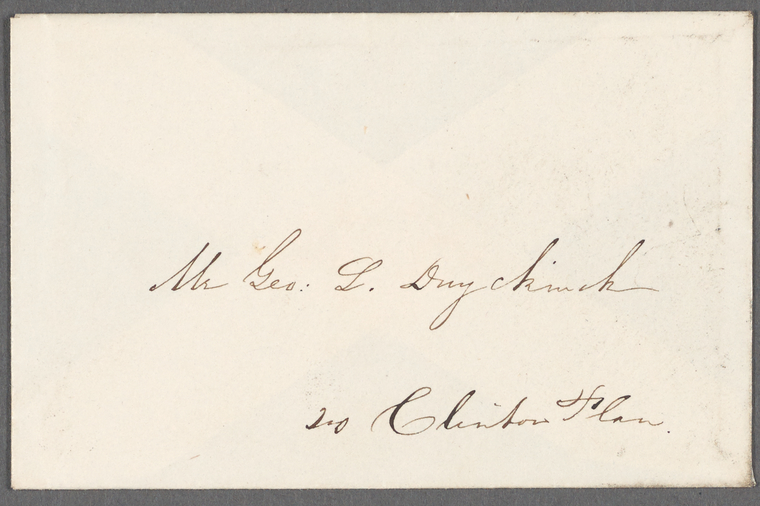 Mr Geo: L. Duyckinck
20 Clinton Place.